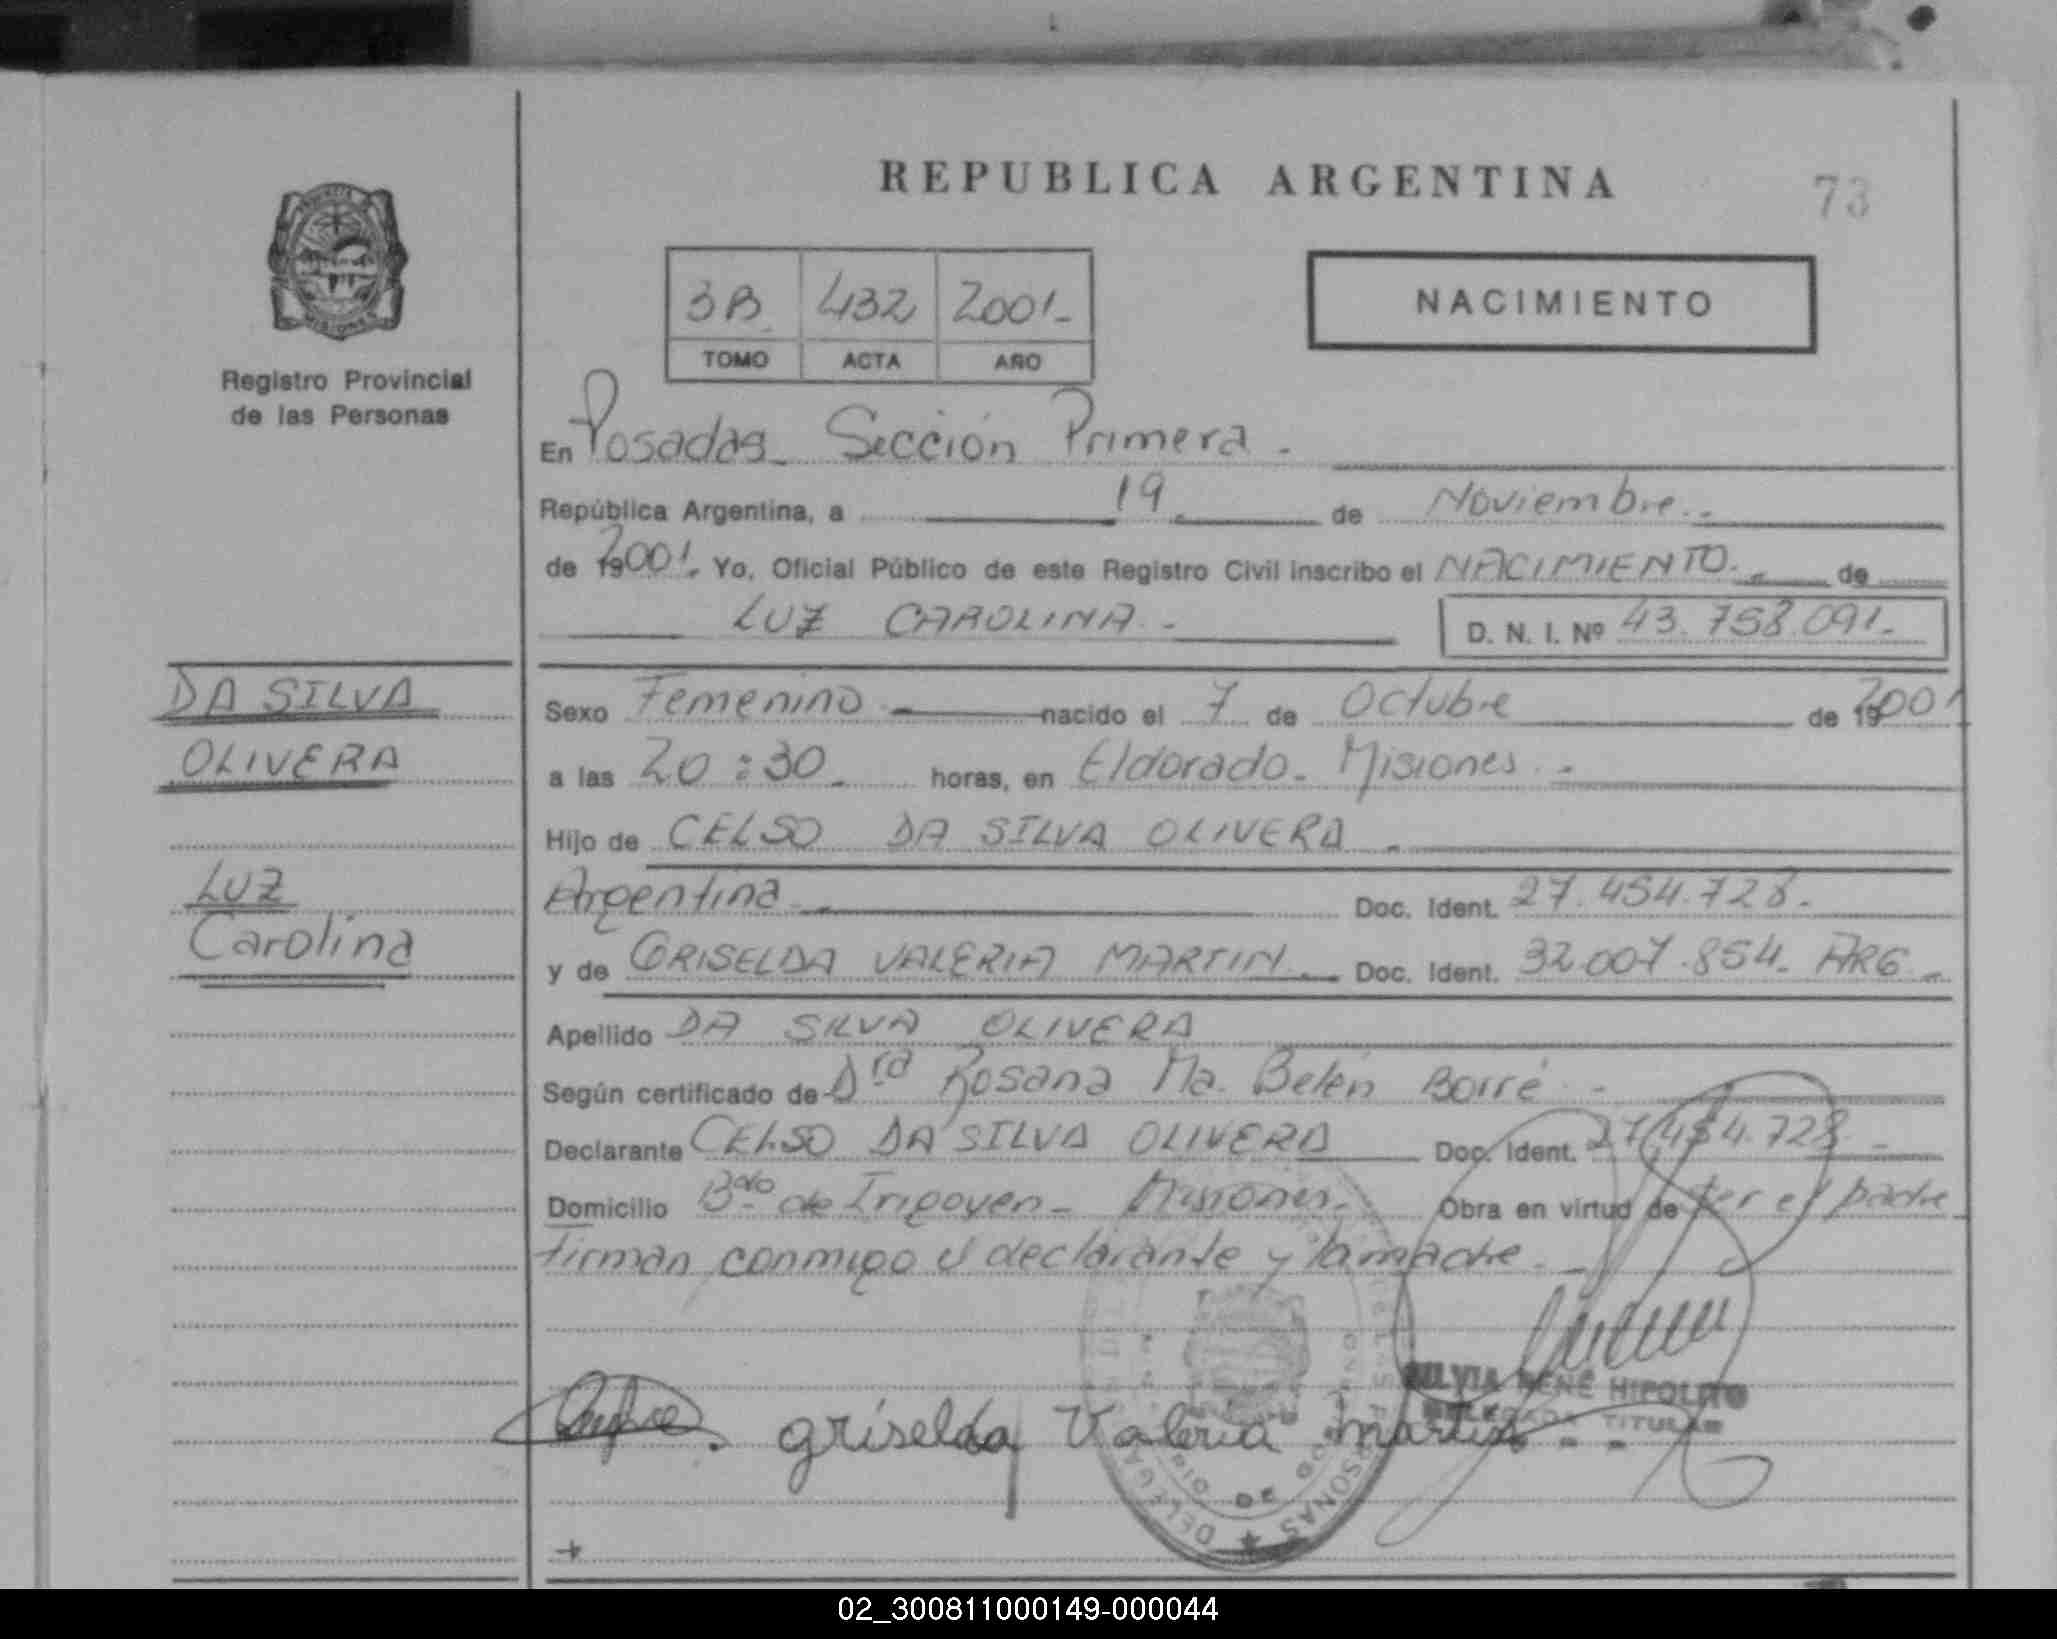 REPUBLICA ARGENTINA
73
3B 432 2001-
TOMO ACTA AÑO
NACIMIENTO
PROVINCIA
MISIONES
Registro Provincial
de las Personas
En Posadas - Sección Primera -
República Argentina, a 19 de Noviembre.-
de 192001. Yo, Oficial Público de este Registro Civil inscribo el NACIMIENTO.- de
LUZ CAROLINA.- D. N. I. Nº 43.758.091.-
DA SILVA
OLIVERA
LUZ
Carolina
Sexo Femenino.- nacido el 7 de Octubre de 192001
a las 20:30.- horas, en Eldorado - Misiones.-
Hijo de CELSO DA SILVA OLIVERA.-
Argentina.- Doc. Ident. 27.454.728.-
y de GRISELDA VALERIA MARTIN.- Doc. Ident. 32.007.854.- ARG.-
Apellido DA SILVA OLIVERA
Según certificado de Dra Rosana Ma. Belén Borré.-
Declarante CELSO DA SILVA OLIVERA Doc. Ident. 27.454.728.-
Domicilio Bdo de Irigoyen - Misiones.- Obra en virtud de ser el padre
Firman conmigo el declarante y la madre.-
SILVIA RENÉ HIPOLITO
DELEGADA TITULAR
griselda Valeria martin
DE
PERSONAS
02_300811000149-000044